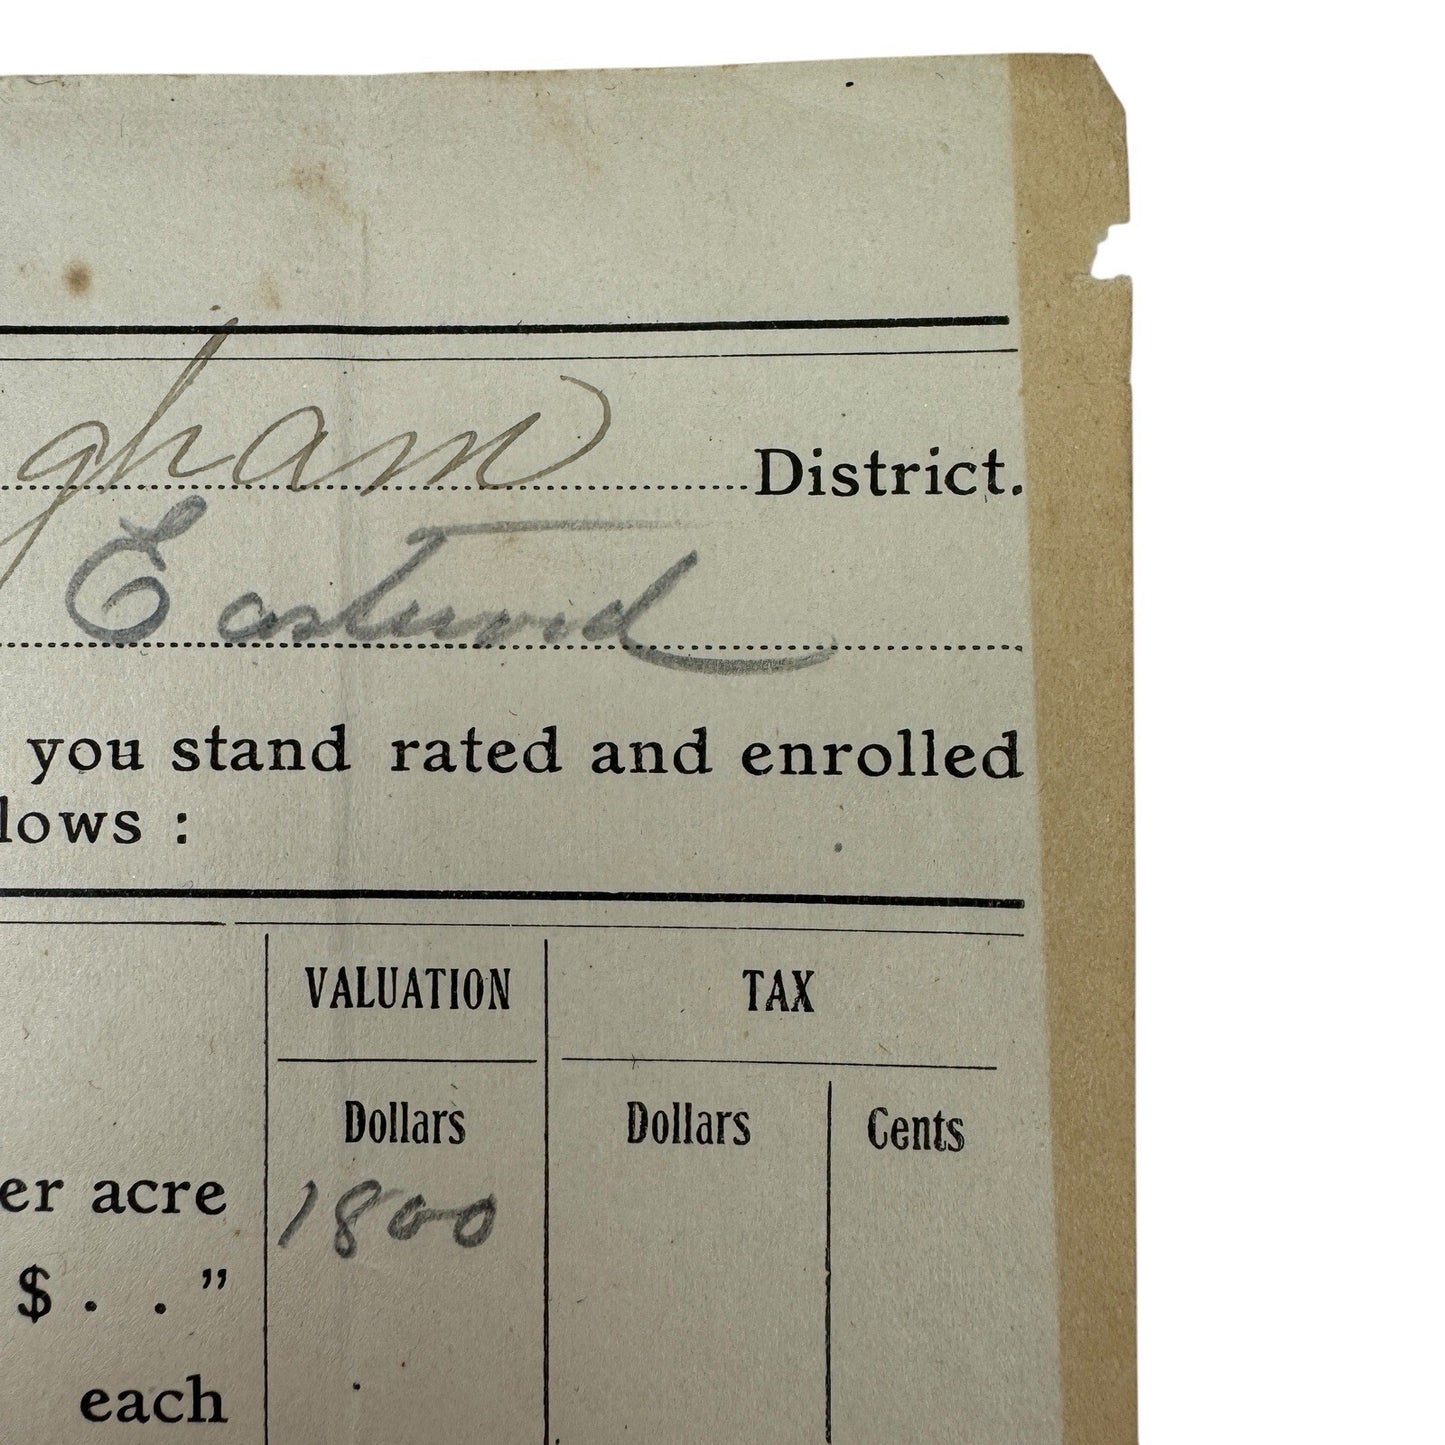 gham District.
Eastwood
you stand rated and enrolled
lows :
VALUATION TAX
Dollars Dollars Cents
er acre 1800
$ . . "
each